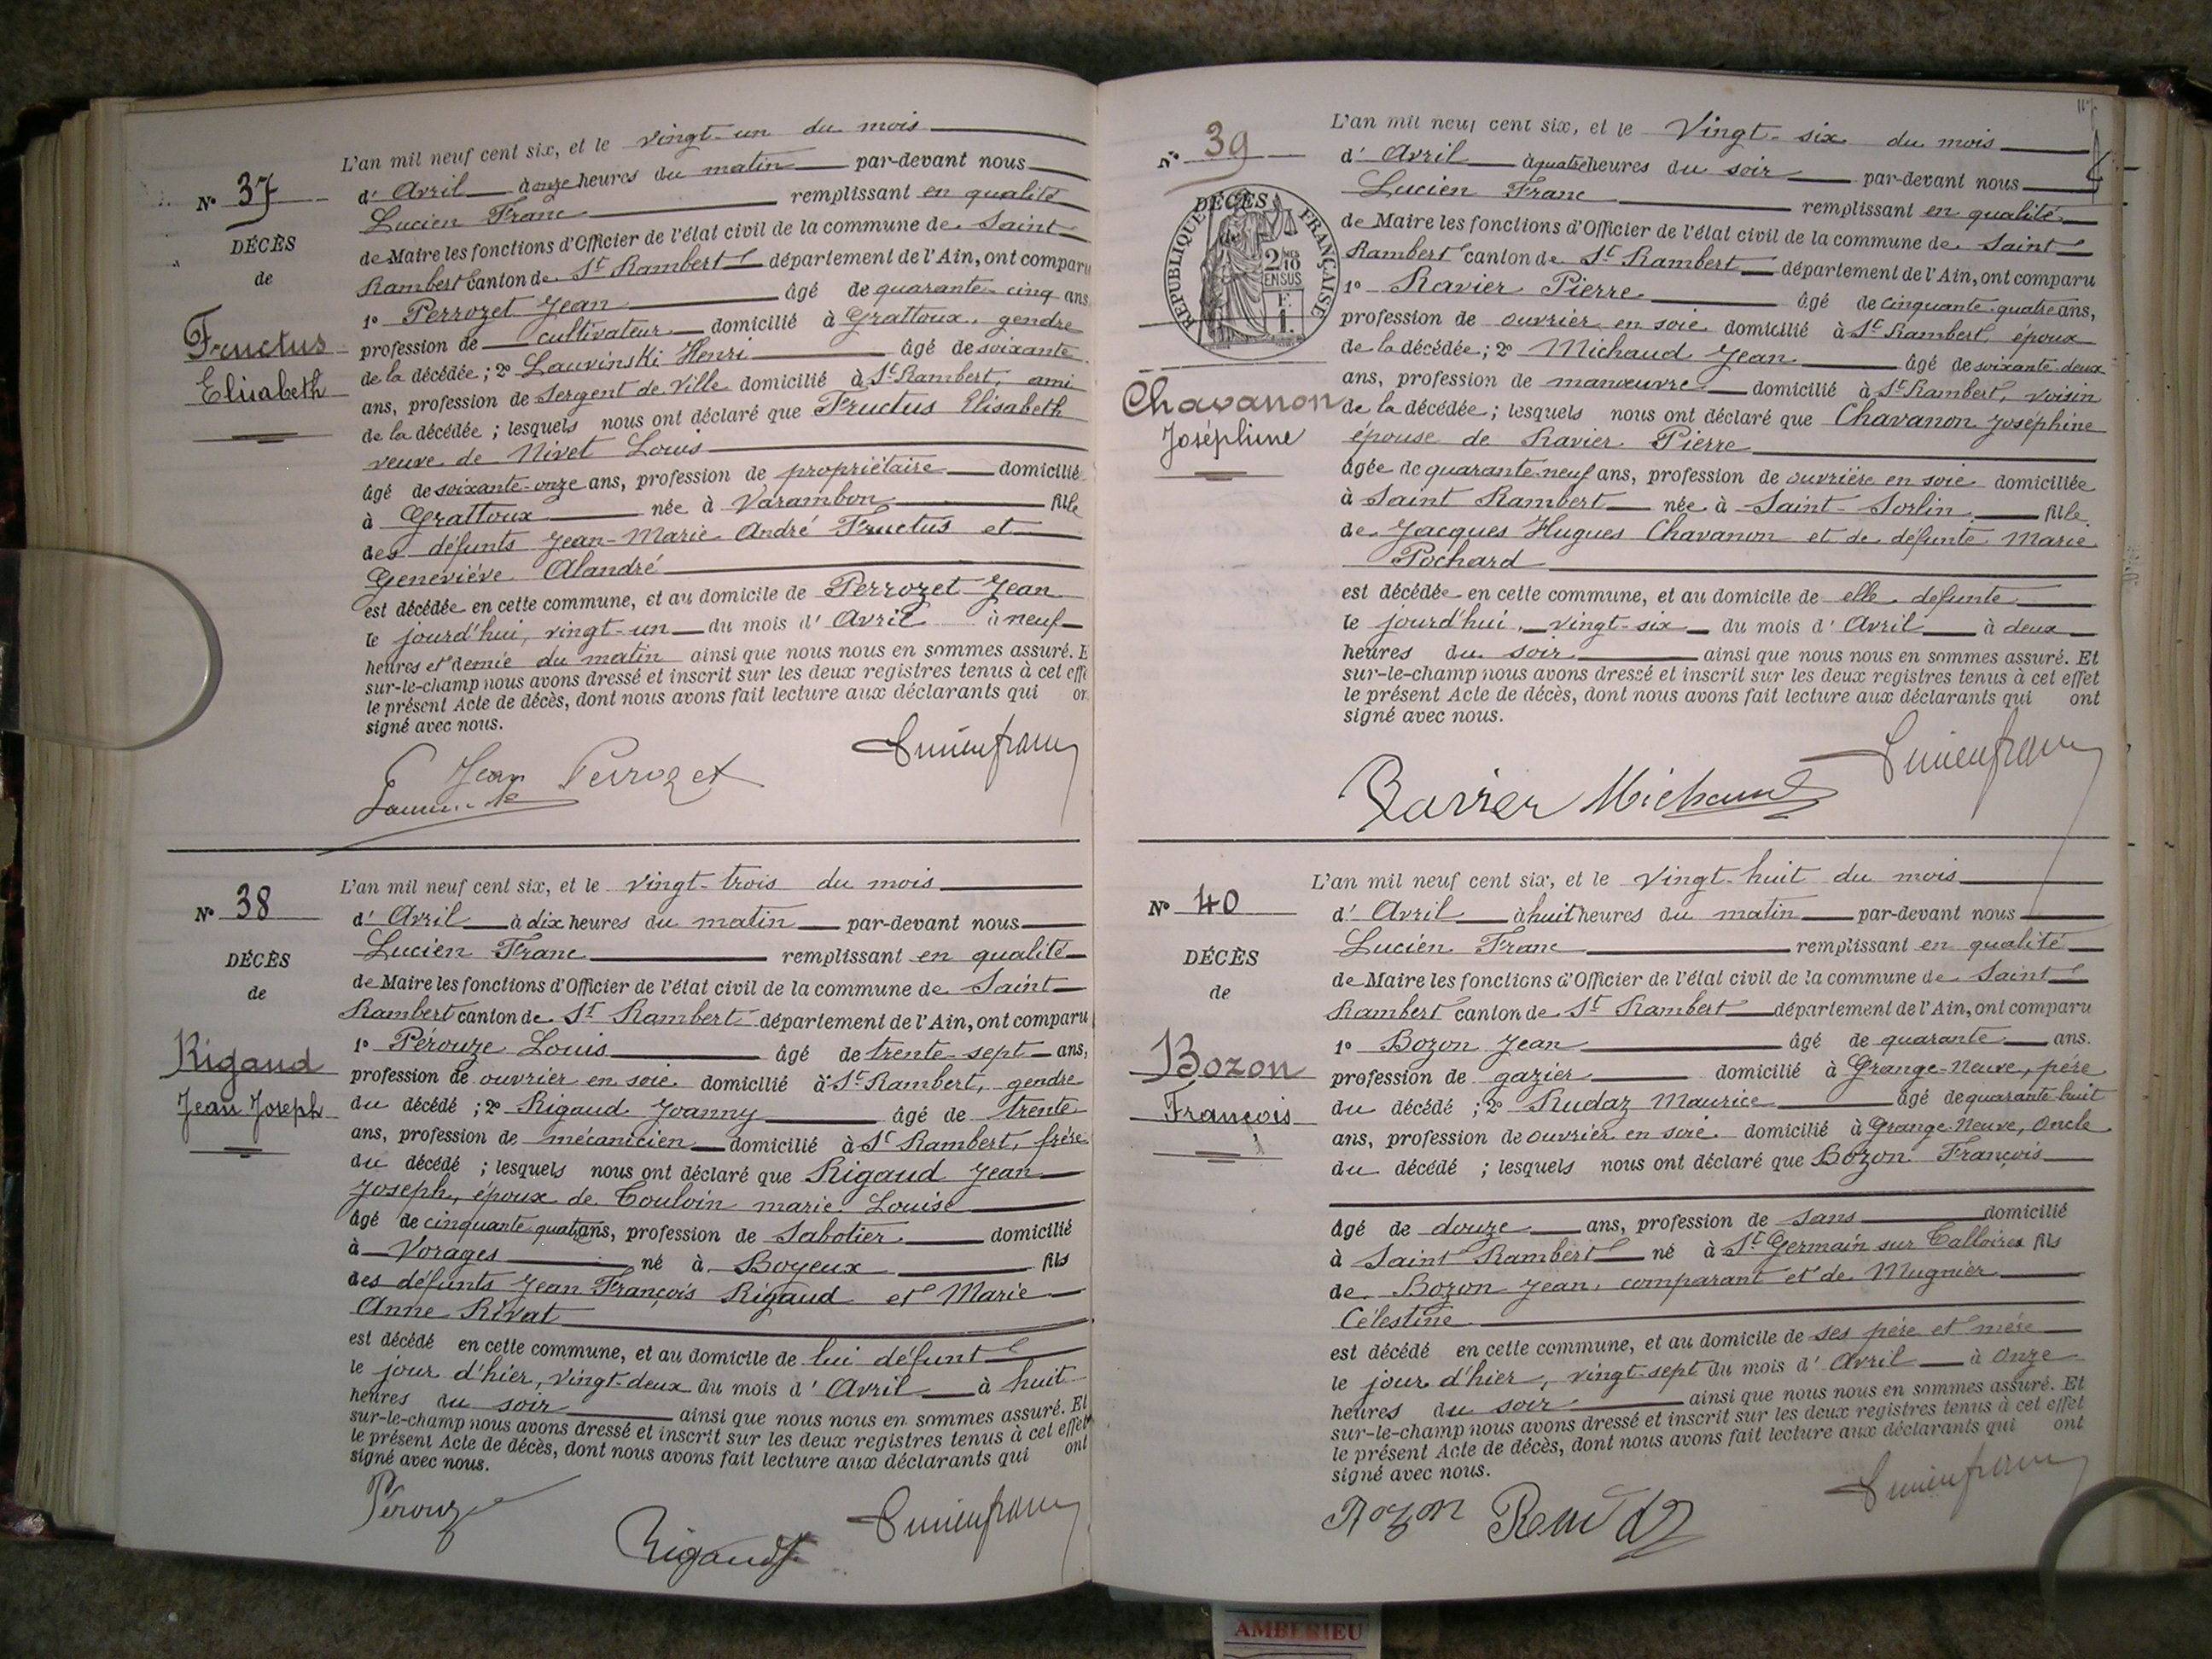 L'an mil neuf cent six, et le vingt-un du mois
N° 37
d'Avril à onze heures du matin par-devant nous
Lucien Franc remplissant en qualité
DÉCÈS
de Maire les fonctions d'Officier de l'état civil de la commune de Saint
de
Rambert canton de St Rambert département de l'Ain, ont comparu
1° Perrozet Jean âgé de quarante-cinq ans
Fructus
profession de cultivateur domicilié à Grattoux, gendre
Elisabeth
de la décédée ; 2° Lauvinski Henri âgé de soixante
ans, profession de Sergent de Ville domicilié à St Rambert, ami
de la décédée ; lesquels nous ont déclaré que Fructus Elisabeth
veuve de Nivet Louis
âgé de soixante-onze ans, profession de propriétaire domicilié
à Grattoux née à Varambon fille
des défunts Jean-Marie André Fructus et
Geneviéve Alandré
est décédée en cette commune, et au domicile de Perrozet Jean
le jourd'hui, vingt-un du mois d'Avril à neuf
heures et demie du matin ainsi que nous nous en sommes assuré. E
sur-le-champ nous avons dressé et inscrit sur les deux registres tenus à cet effe
le présent Acte de décès, dont nous avons fait lecture aux déclarants qui on
signé avec nous.
Jean Perrozet
Lucien franc
L'an mil neuf cent six, et le vingt-trois du mois
N° 38
d'Avril à dix heures du matin par-devant nous
Lucien Franc remplissant en qualité
DÉCÈS
de Maire les fonctions d'Officier de l'état civil de la commune de Saint
de
Rambert canton de St Rambert département de l'Ain, ont comparu
1° Pérouze Louis âgé de trente-sept ans,
Rigaud
profession de ouvrier en soie domicilié à St Rambert, gendre
Jean Joseph
du décédé ; 2° Rigaud Joanny âgé de trente
ans, profession de mécanicien domicilié à St Rambert, frére
du décédé ; lesquels nous ont déclaré que Rigaud Jean
Joseph, époux de Touloin marie Louise
âgé de cinquante-quatre ans, profession de Sabotier domicilié
à Vorages né à Boyeux fils
des défunts Jean François Rigaud et Marie
Anne Rivat
est décédé en cette commune, et au domicile de lui défunt
le jour d'hier, vingt-deux du mois d'Avril à huit
heures du soir ainsi que nous nous en sommes assuré. Et
sur-le-champ nous avons dressé et inscrit sur les deux registres tenus à cet effet
le présent Acte de décès, dont nous avons fait lecture aux déclarants qui ont
signé avec nous.
Pérouze
Rigaud J.
Lucien franc
L'an mil neuf cent six, et le Vingt-six du mois
N° 39
d'Avril à quatre heures du soir par-devant nous
Lucien Franc remplissant en qualité
DÉCÈS
RÉPUBLIQUE FRANÇAISE
2 MES
10
EN SUS
F.
1.
de Maire les fonctions d'Officier de l'état civil de la commune de Saint
Rambert canton de St Rambert département de l'Ain, ont comparu
1° Ravier Pierre âgé de cinquante-quatre ans,
profession de ouvrier en soie domicilié à St Rambert, époux
de la décédée ; 2° Michaud Jean âgé de soixante-deux
ans, profession de manœuvre domicilié à St Rambert, voisin
Chavanon
de la décédée ; lesquels nous ont déclaré que Chavanon Joséphine
Joséphine
épouse de Ravier Pierre
âgée de quarante-neuf ans, profession de ouvrière en soie domiciliée
à Saint Rambert née à Saint-Sorlin fille
de Jacques Hugues Chavanon et de défunte Marie
Pochard
est décédée en cette commune, et au domicile de elle défunte
le jourd'hui, vingt-six du mois d'Avril à deux
heures du soir ainsi que nous nous en sommes assuré. Et
sur-le-champ nous avons dressé et inscrit sur les deux registres tenus à cet effet
le présent Acte de décès, dont nous avons fait lecture aux déclarants qui ont
signé avec nous.
Ravier Michaud
Lucien franc
L'an mil neuf cent six, et le Vingt-huit du mois
N° 40
d'Avril à huit heures du matin par-devant nous
Lucien Franc remplissant en qualité
DÉCÈS
de Maire les fonctions d'Officier de l'état civil de la commune de Saint
de
Rambert canton de St Rambert département de l'Ain, ont comparu
1° Bozon Jean âgé de quarante ans.
Bozon
profession de gazier domicilié à Grange-Neuve, père
François
du décédé ; 2° Rudaz Maurice âgé de quarante-huit
ans, profession de ouvrier en soie domicilié à Grange-Neuve, Oncle
du décédé ; lesquels nous ont déclaré que Bozon François
âgé de douze ans, profession de sans domicilié
à Saint Rambert né à St Germain sur Talloires fils
de Bozon Jean, comparant et de Mugnier
Célestine
est décédé en cette commune, et au domicile de ses pére et mére
le jour d'hier, vingt-sept du mois d'Avril à onze
heures du soir ainsi que nous nous en sommes assuré. Et
sur-le-champ nous avons dressé et inscrit sur les deux registres tenus à cet effet
le présent Acte de décès, dont nous avons fait lecture aux déclarants qui ont
signé avec nous.
Bozon
Lucien franc
AMBERIEU